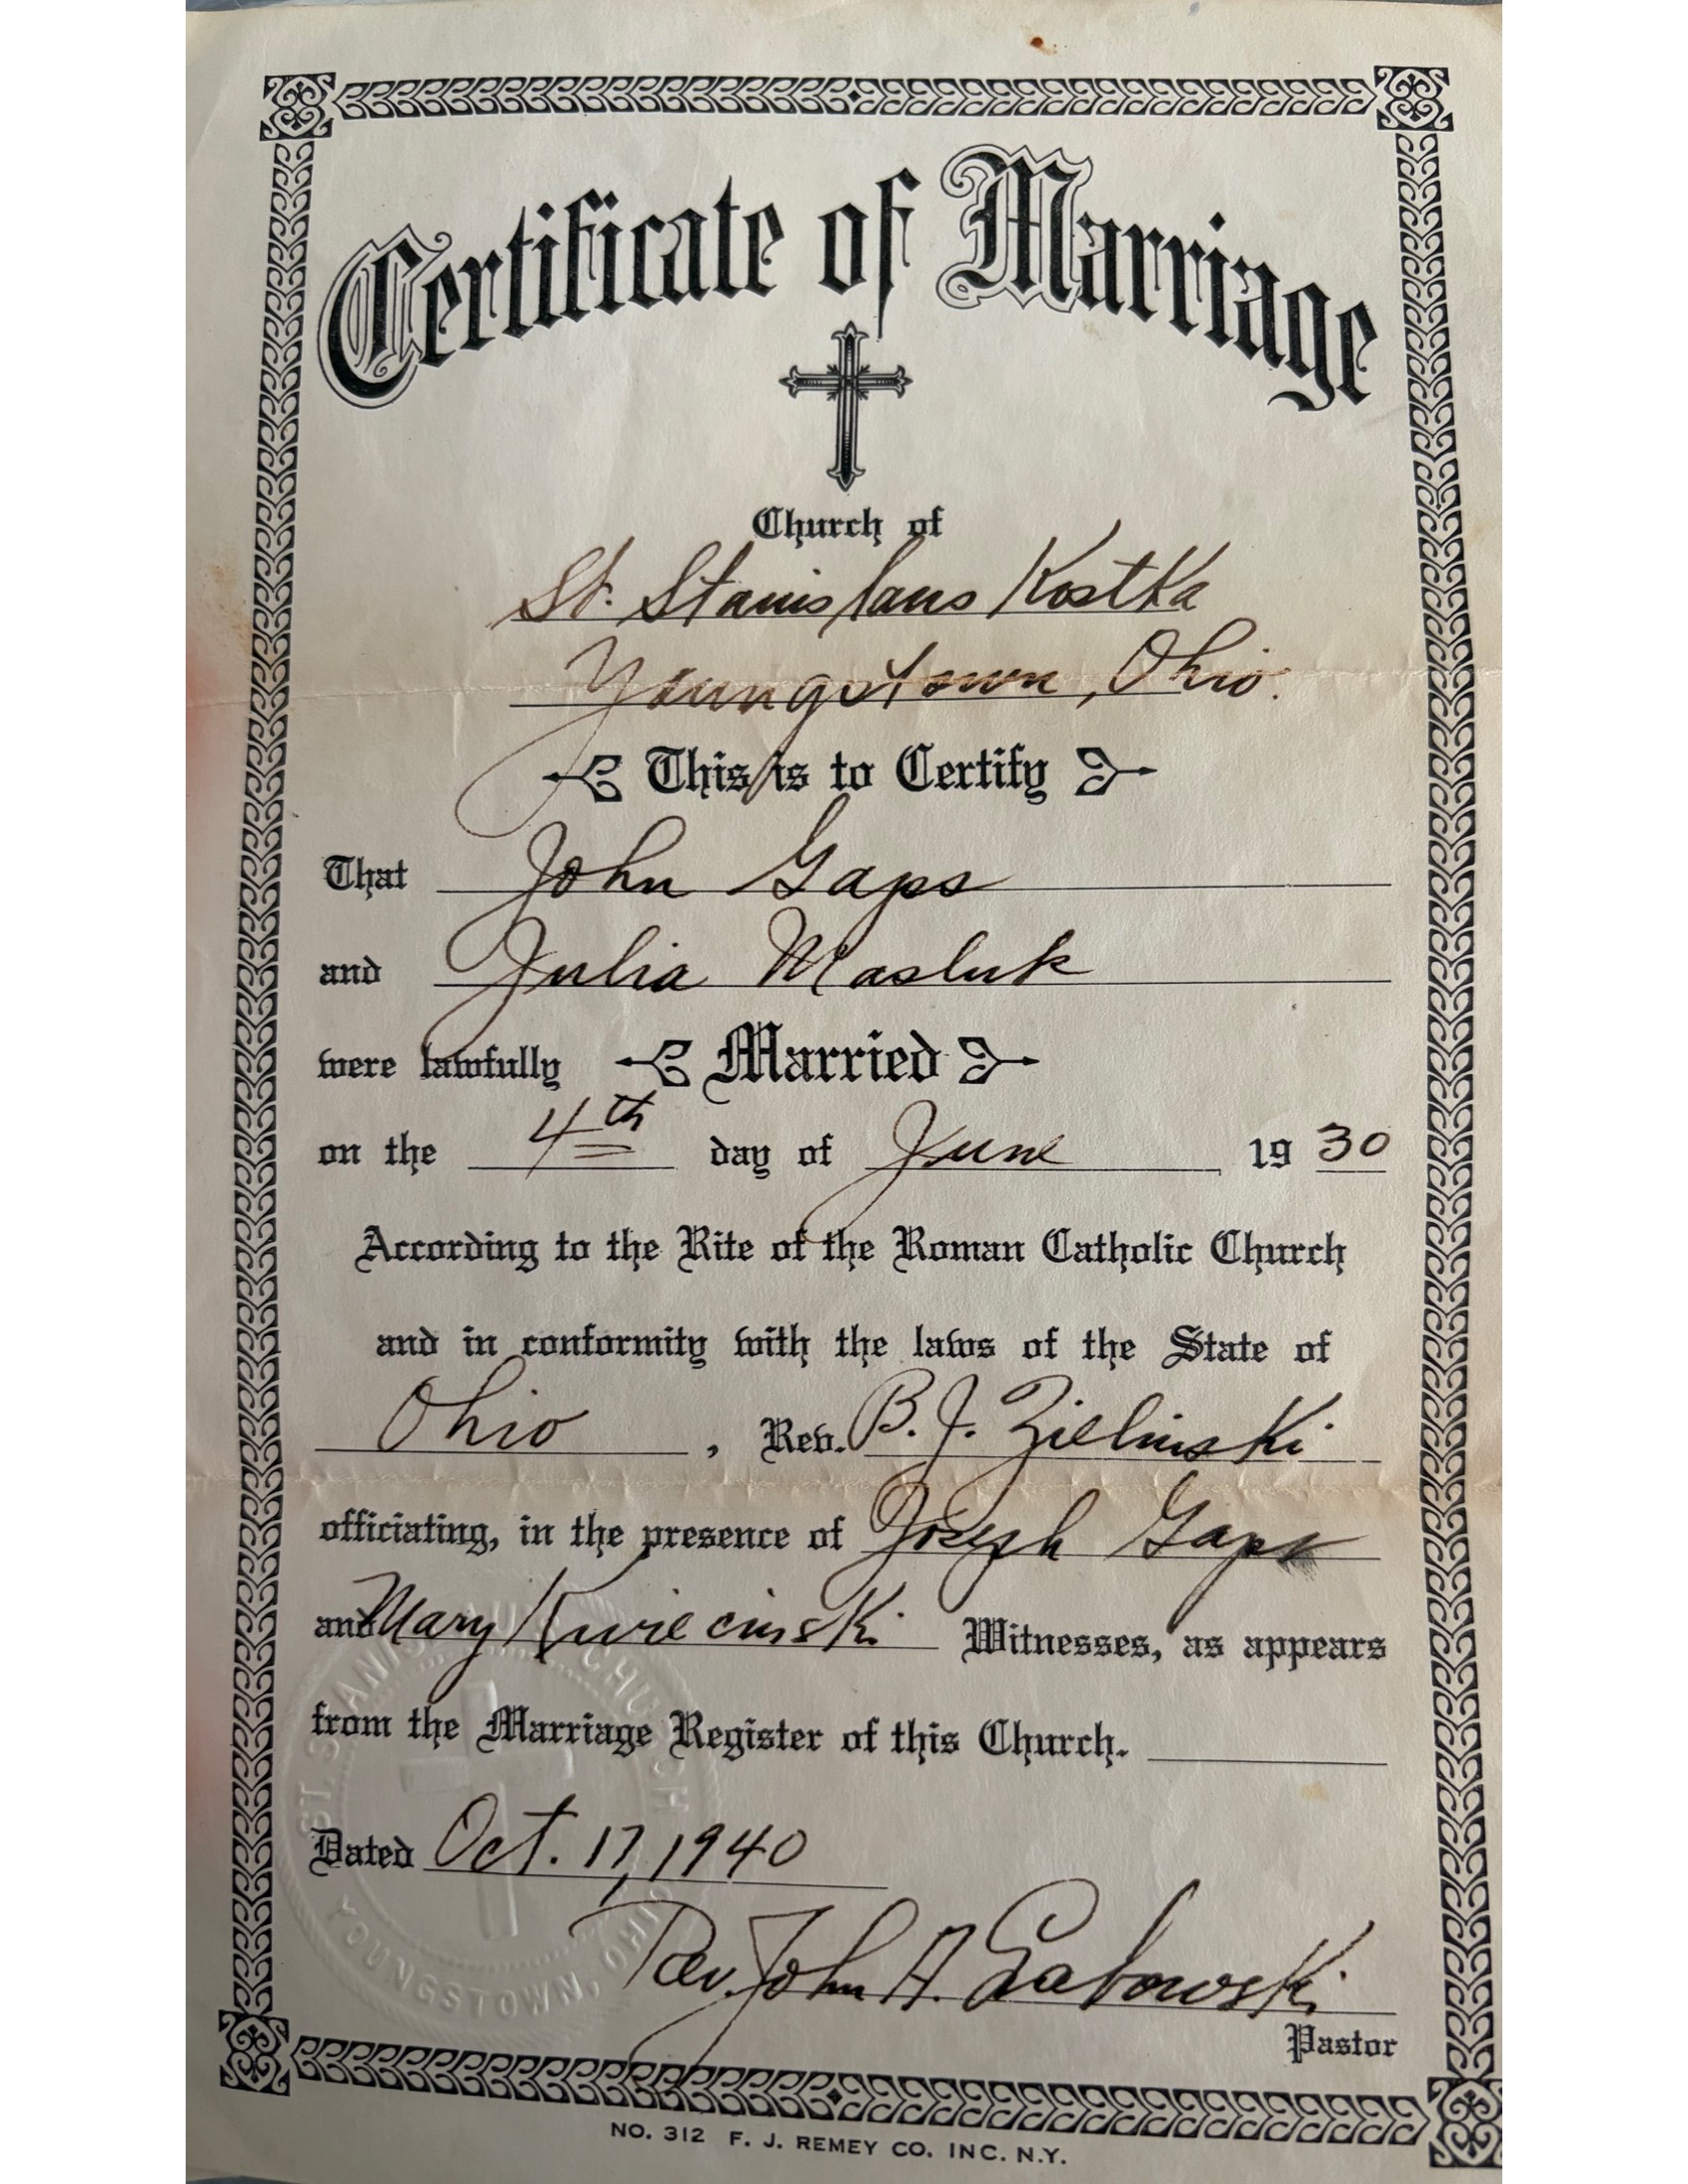 Certificate of Marriage
Church of
St. Stanislaus Kostka
Youngstown, Ohio.
This is to Certify
That John Gaps
and Julia Masluk
were lawfully Married
on the 4th day of June 1930
According to the Rite of the Roman Catholic Church
and in conformity with the laws of the State of
Ohio, Rev. B. J. Zielinski
officiating, in the presence of Joseph Gaps
and Mary Kwiecinski Witnesses, as appears
from the Marriage Register of this Church.
Dated Oct. 17, 1940
Rev. John A.
Pastor
ST. STANISLAUS CHURCH
YOUNGSTOWN, OHIO
NO. 312 F. J. REMEY CO. INC. N.Y.